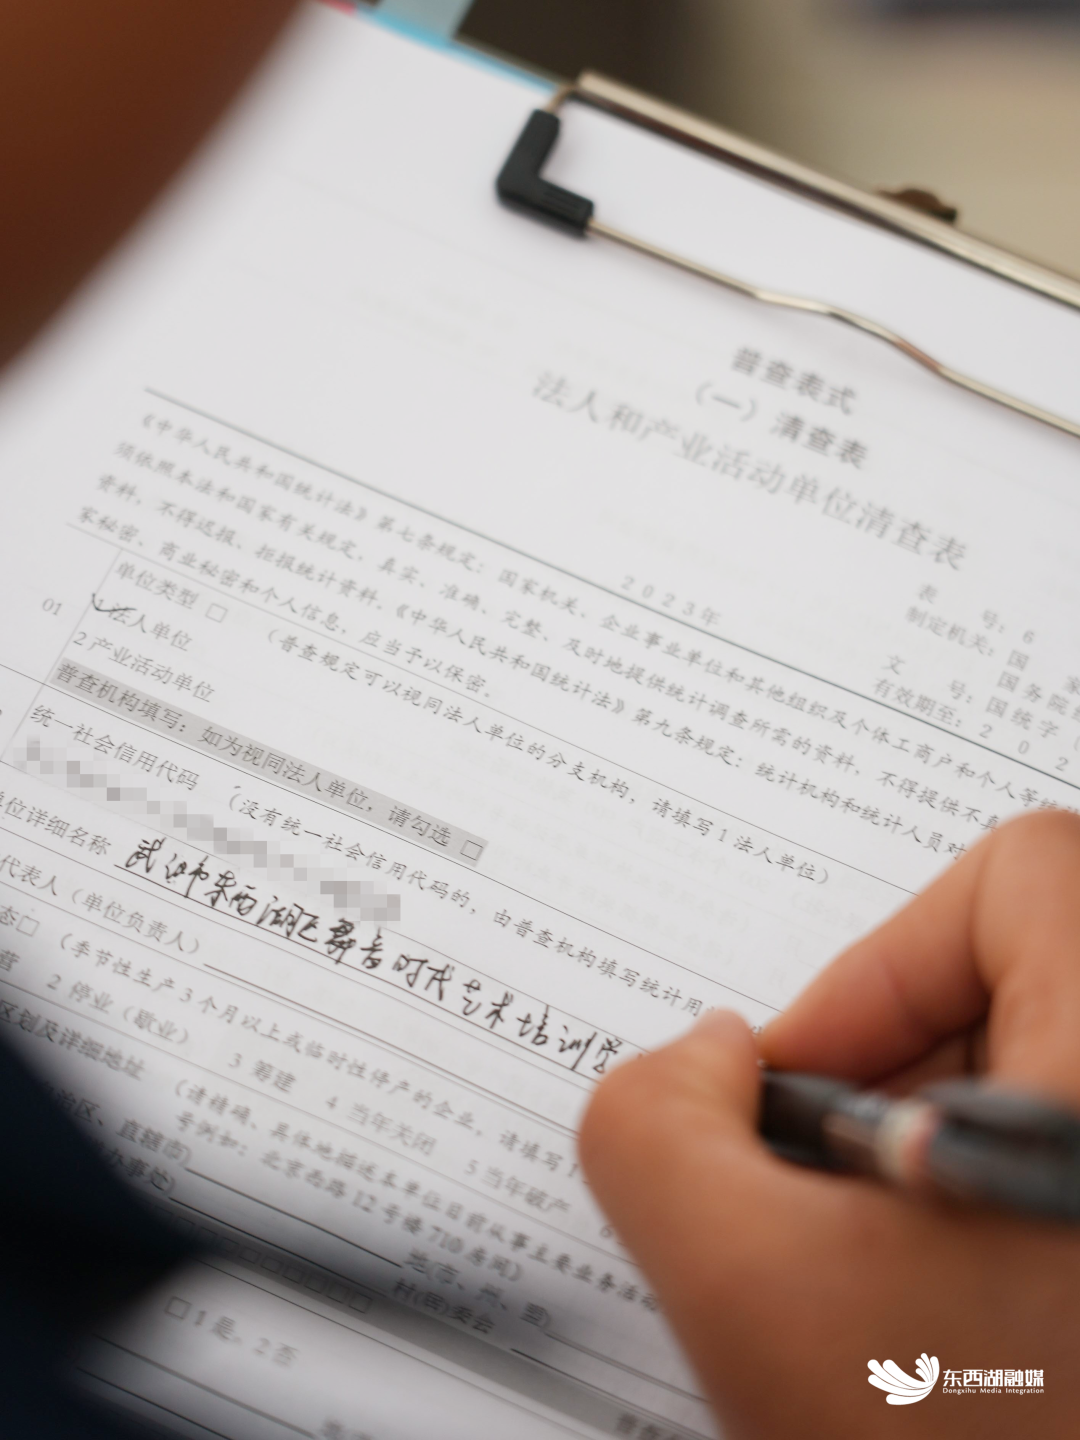 普查表式
（一）清查表
法人和产业活动单位清查表
表 号：6
制定机关：国 家
国务院
文 号：国统字（
2023年
有效期至：20 2
《中华人民共和国统计法》第七条规定：国家机关、企业事业单位和其他组织及个体工商户和个人等统
须依照本法和国家有关规定，真实、准确、完整、及时地提供统计调查所需的资料，不得提供不真
资料，不得迟报、拒报统计资料。《中华人民共和国统计法》第九条规定：统计机构和统计人员对
家秘密、商业秘密和个人信息，应当予以保密。
01
单位类型 □ （普查规定可以视同法人单位的分支机构，请填写1法人单位）
1 法人单位
2 产业活动单位
普查机构填写：如为视同法人单位，请勾选 □
统一社会信用代码 （没有统一社会信用代码的，由普查机构填写统计用
单位详细名称 武汉市东西湖区舞音时代艺术培训学
代表人（单位负责人）
态□ （季节性生产3个月以上或临时性停产的企业，请填写1
营 2 停业（歇业） 3 筹建 4 当年关闭 5 当年破产 6
区划及详细地址 （请精确、具体地描述本单位目前从事主要业务活动
号例如：北京西路12号楼710房间）
治区、直辖市) 地(市、州、盟)
办事处) 村(居)委会
□ 1 是，2 否
东西湖融媒
Dongxihu Media Integration